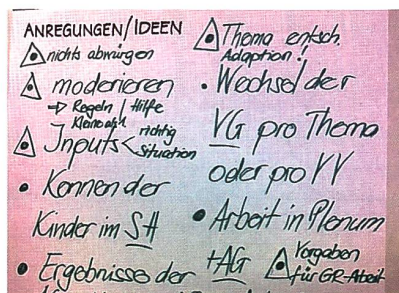 ANREGUNGEN/IDEEN
nichts abwürgen
moderieren
→ Regeln / Hilfe
Inputs < richtig
Situation
• Kennen der
Kinder im SH
• Ergebnisse der
Thema entsch.
Adaption!
• Wechsel der
VG pro Thema
oder pro VV
• Arbeit in Plenum
+AG
Vorgaben
für GR-Arbeit